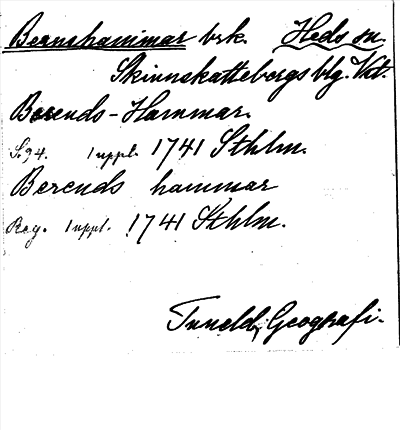 Bernshammar brk. Heds sn.
Skinnskattebergs blg. Vtl.
Berends-Hammar.
S. 94. 1 uppl. 1741 Sthlm.
Berends hammar
Reg. 1 uppl. 1741 Sthlm.
Tuneld, Geografi.